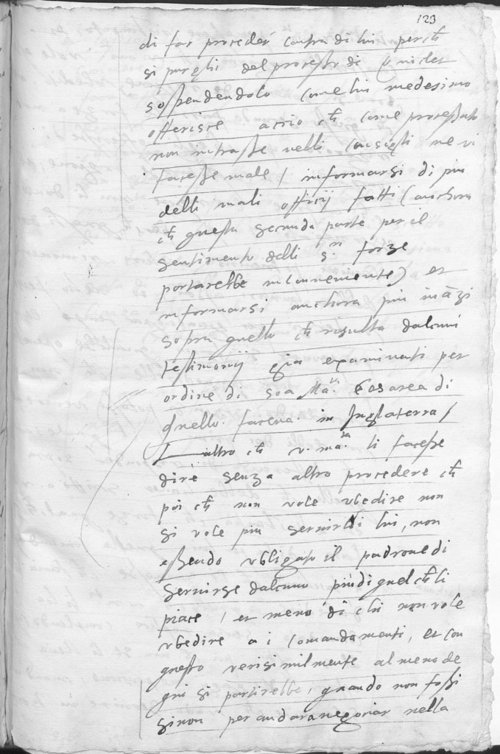 123
di far procedere contra di lui perch
si purghi del processo de
sospendendolo come lui medesimo
offerisce accio ch come processato
non intrasse nelli consegli ne vi
facesse male / informarsi di piu
delli mali officij fatti (anchora
ch questa seconda parte per el
sentimento delli s.ri forse
portarebbe inconveniente) et
informarsi anchora piu ināzi
sopra quello ch risulta dalcuni
testimonij gia examinati per
ordine di soa Ma.ta Cesarea di
quello faceva in Inglaterra /
L altro ch v. ma.ta li facesse
dire senza altro procedere ch
poi ch non vole ubedire non
si vole piu servir di lui, non
essendo ubligato il padrone di
servirse dalcuno piu di quel ch li
piace / et meno di chi non vole
ubedire a i comandamenti, et con
questo verisimilmente al meno de
qui si partirebbe, quando non fossi
sinon per andar a negociar nella